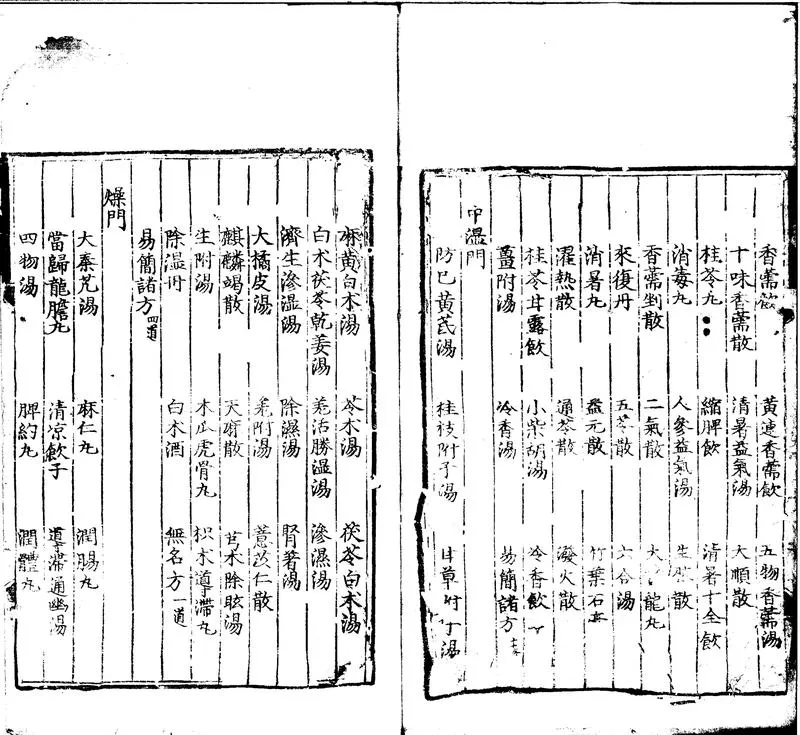 香薷飲 黃連香薷飲 五物香薷湯
十味香薷散 清暑益氣湯 大順散
桂苓丸 縮脾飲 清暑十全飲
消毒丸 人參益氣湯 生脉散
香薷剉散 二氣散 大 龍丸
來復丹 五苓散 六合湯
消暑丸 益元散 竹葉石
濯熱散 通苓散 潑火散
桂苓甘露飲 小柴胡湯 冷香飲
薑附湯 冷香湯 易簡諸方
中濕門
防巳黃茋湯 桂枝附子湯 甘草附子湯
麻黃白术湯 苓术湯 茯苓白术湯
白术茯苓乾姜湯 羌活勝温湯 滲濕湯
濟生滲湿湯 除濕湯 腎著湯
大橘皮湯 羌附湯 薏苡仁散
麒麟竭散 天麻散 芎术除眩湯
生附湯 木瓜虎骨丸 枳术導滯丸
除湿丹 白术酒 無名方一道
易簡諸方四道
燥門
大秦艽湯 麻仁丸 潤腸丸
當歸龍膽丸 清凉飲子 導滯通幽湯
四物湯 脾約丸 潤體丸